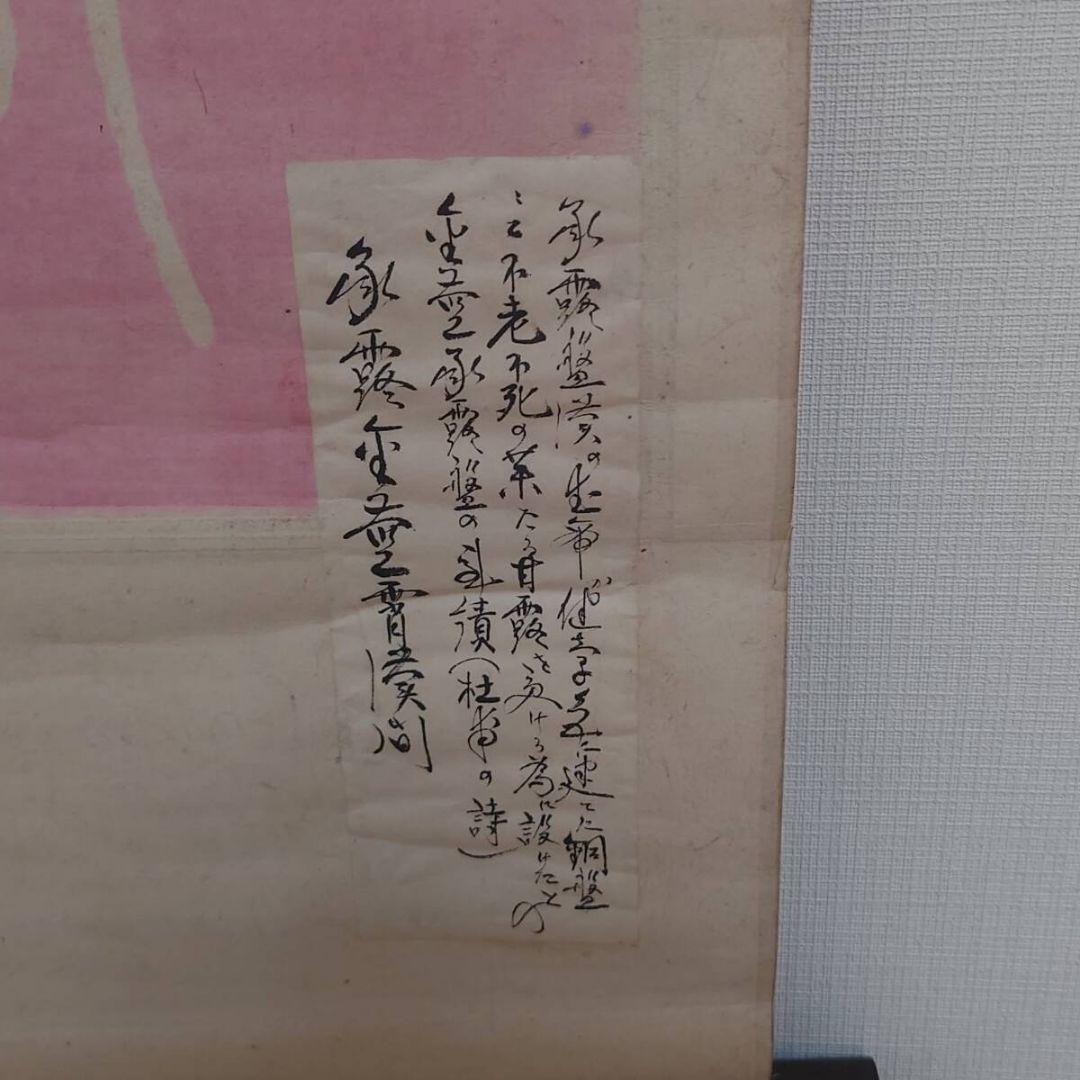 承露盤漢の武帝が健章宮に建てた銅盤
不老不死の薬たる甘露を受ける為に設けたもの
金莖承露盤の績(杜甫の詩)
承露金莖霄漢間